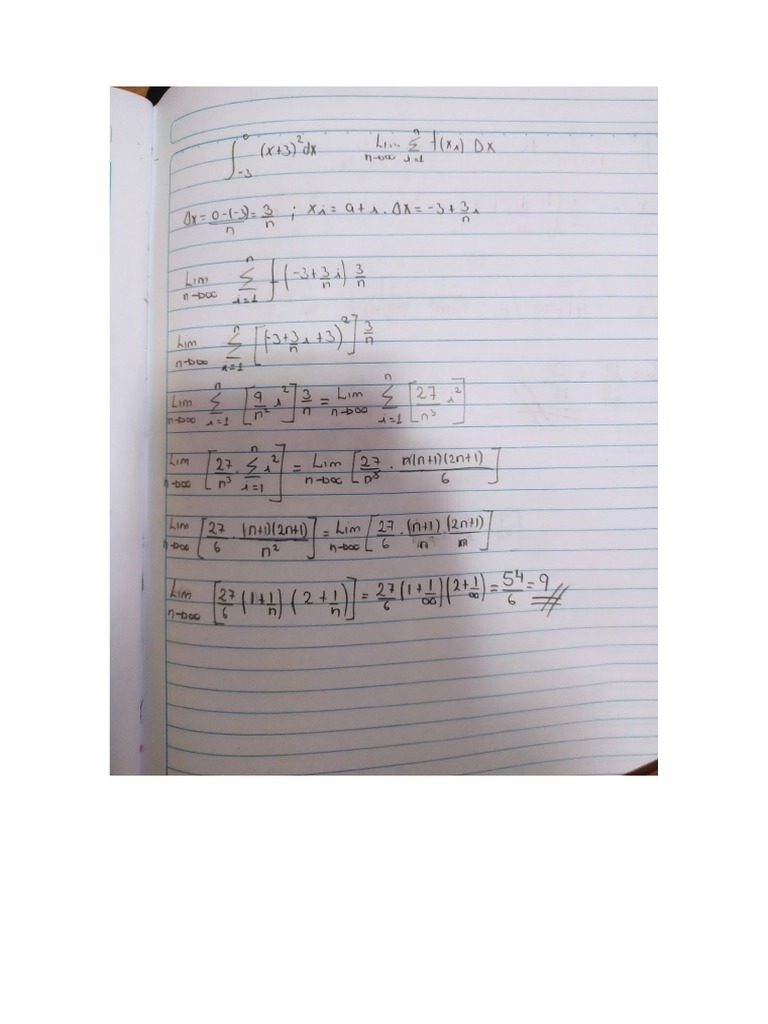 ∫₋₃⁰ (x+3)² dx    Lim n→∞ Σ i=1 n f(xi) Δx
Δx = 0-(-3)/n = 3/n ; xi = a + i . Δx = -3 + 3/n i
Lim n→∞ Σ i=1 n f(-3 + 3/n i) 3/n
Lim n→∞ Σ i=1 n [(-3 + 3/n i + 3)²] 3/n
Lim n→∞ Σ i=1 n [9/n² i²] 3/n = Lim n→∞ Σ i=1 n [27/n³ i²]
Lim n→∞ [27/n³ . Σ i=1 n i²] = Lim n→∞ [27/n³ . n(n+1)(2n+1)/6]
Lim n→∞ [27/6 . (n+1)(2n+1)/n²] = Lim n→∞ [27/6 . (n+1)/n (2n+1)/n]
Lim n→∞ [27/6 (1 + 1/n) (2 + 1/n)] = 27/6 (1 + 1/∞)(2 + 1/∞) = 54/6 = 9